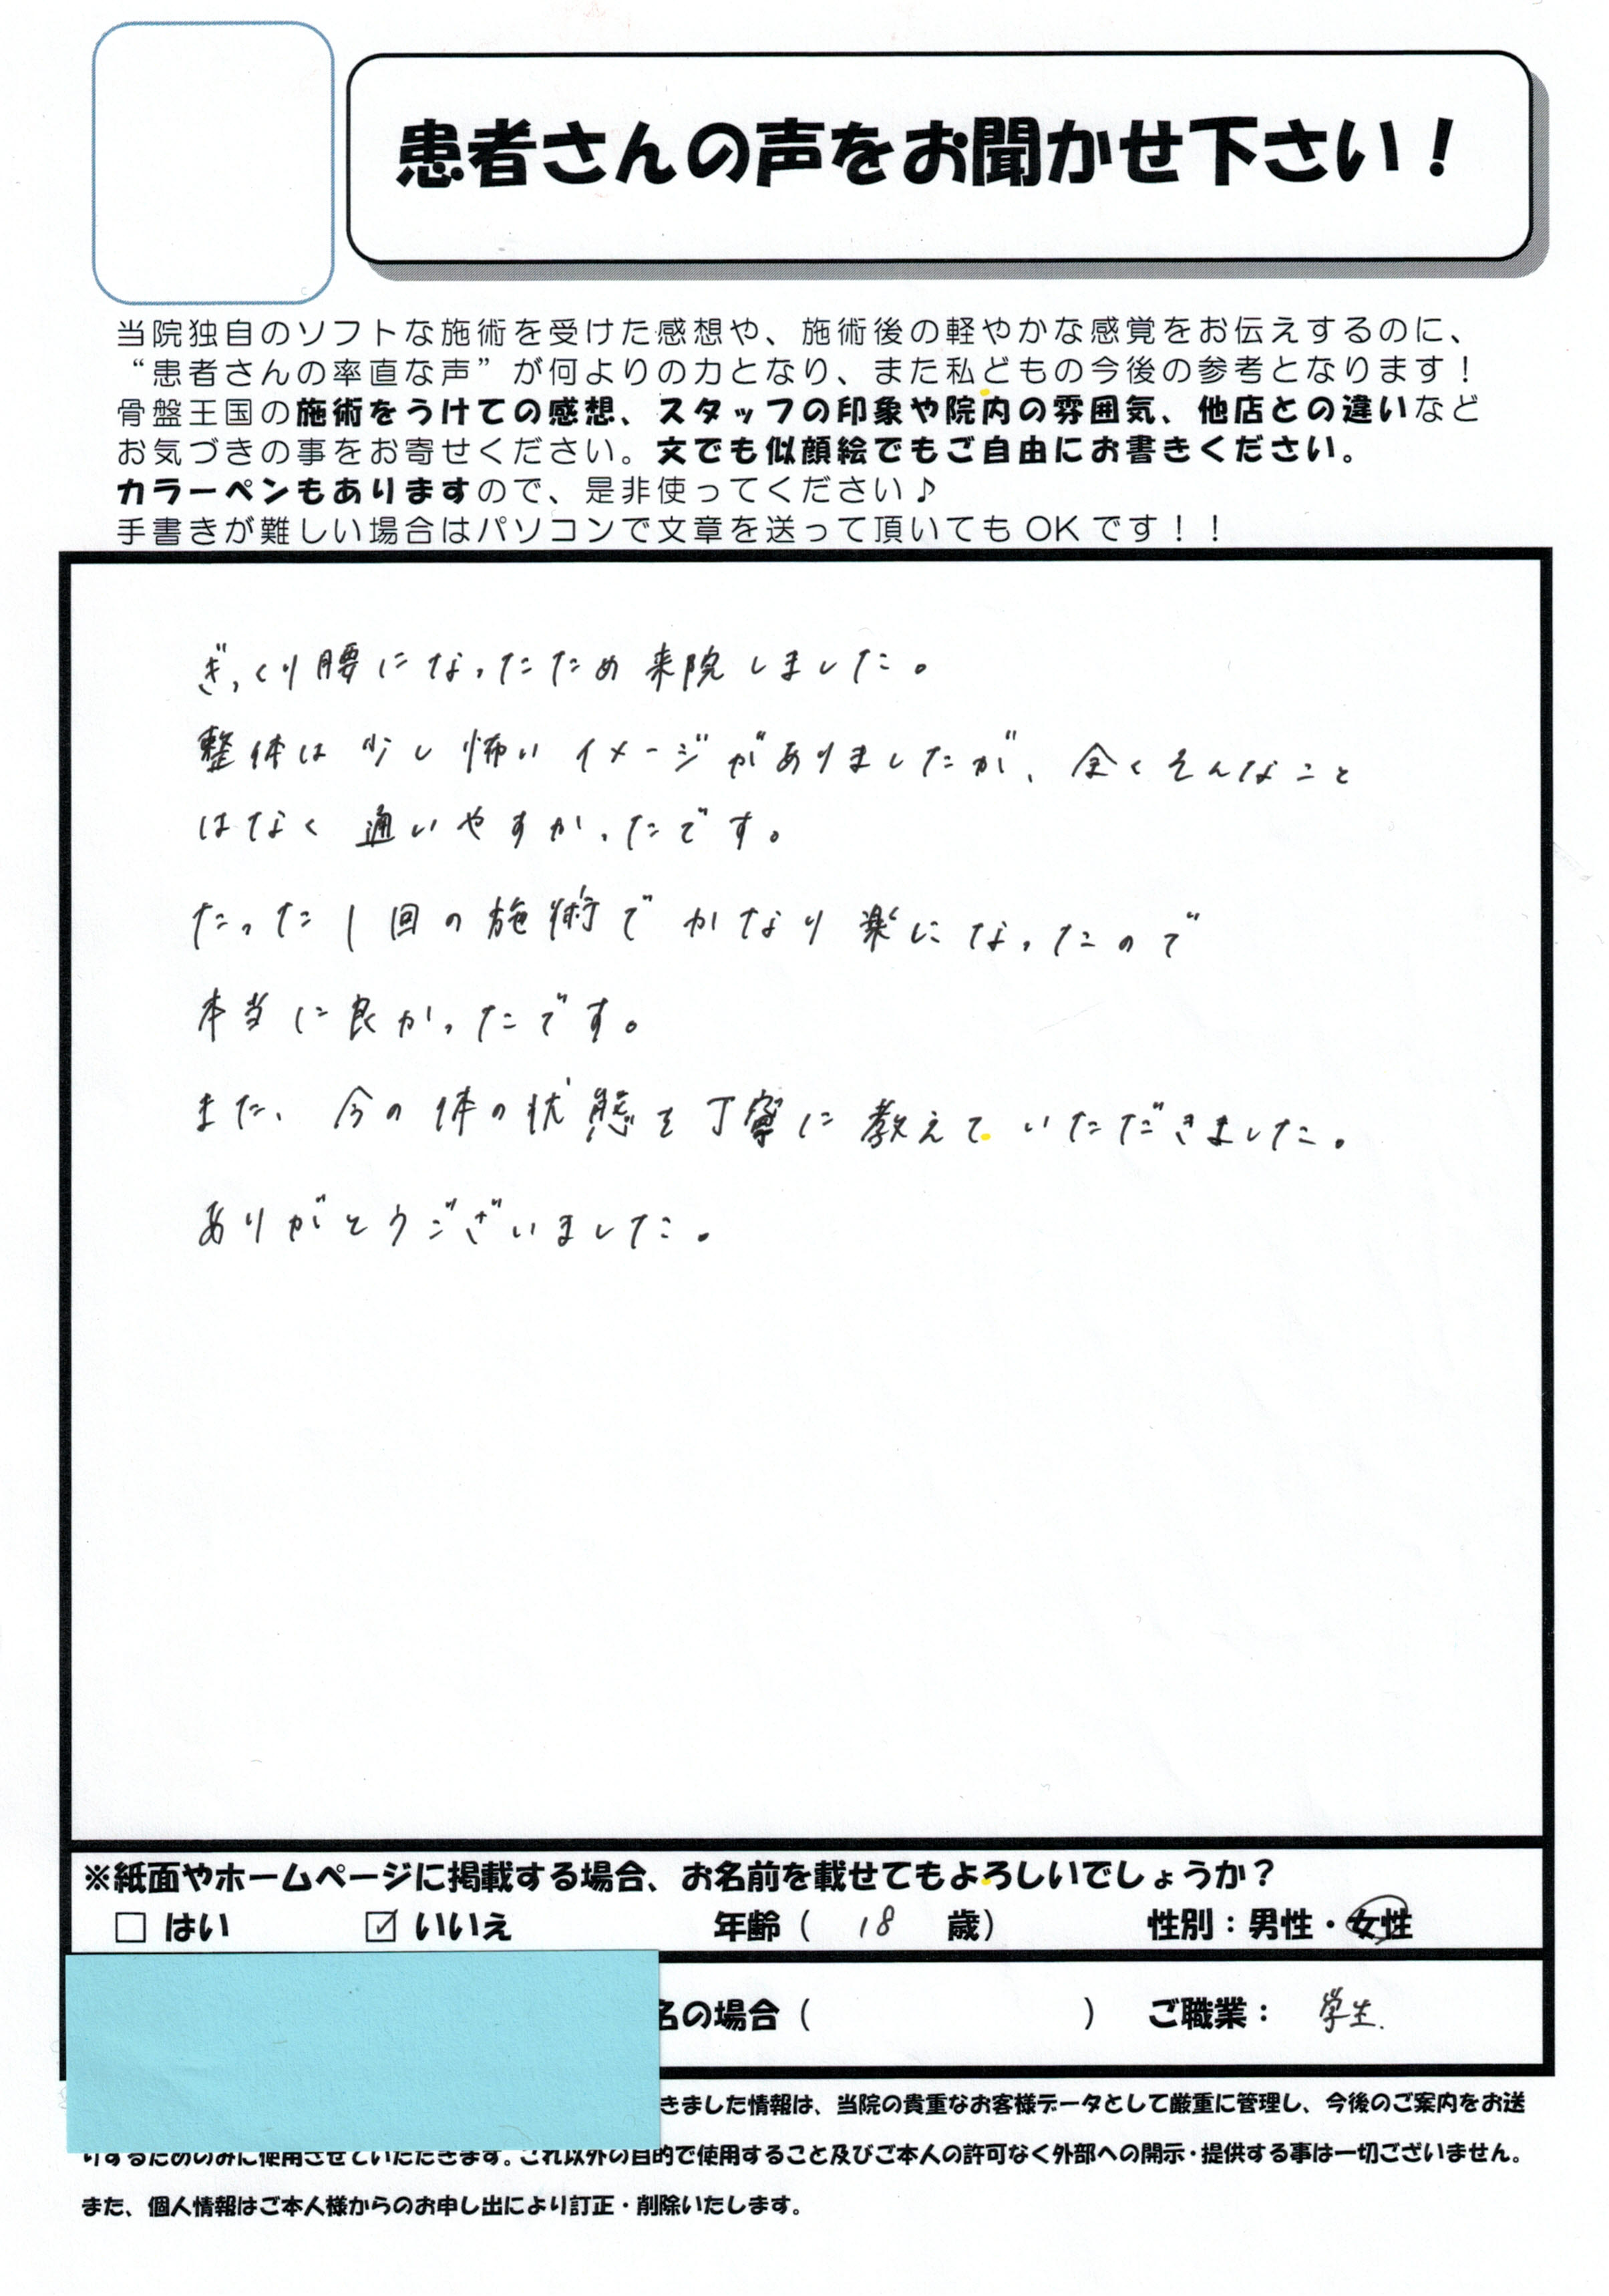 患者さんの声をお聞かせ下さい！
当院独自のソフトな施術を受けた感想や、施術後の軽やかな感覚をお伝えするのに、
“患者さんの率直な声”が何よりの力となり、また私どもの今後の参考となります！
骨盤王国の施術をうけての感想、スタッフの印象や院内の雰囲気、他店との違いなど
お気づきの事をお寄せください。文でも似顔絵でもご自由にお書きください。
カラーペンもありますので、是非使ってください♪
手書きが難しい場合はパソコンで文章を送って頂いてもOKです！！
ぎっくり腰になったため来院しました。
整体は少し怖いイメージがありましたが、全くそんなこと
はなく通いやすかったです。
たった1回の施術でかなり楽になったので
本当に良かったです。
また、今の体の状態を丁寧に教えていただきました。
ありがとうございました。
※紙面やホームページに掲載する場合、お名前を載せてもよろしいでしょうか？
□ はい ☑ いいえ 年齢（ 18 歳） 性別：男性・女性
名の場合（ ） ご職業： 学生.
きました情報は、当院の貴重なお客様データとして厳重に管理し、今後のご案内をお送
りするためのみに使用させていただきます。これ以外の目的で使用すること及びご本人の許可なく外部への開示・提供する事は一切ございません。
また、個人情報はご本人様からのお申し出により訂正・削除いたします。